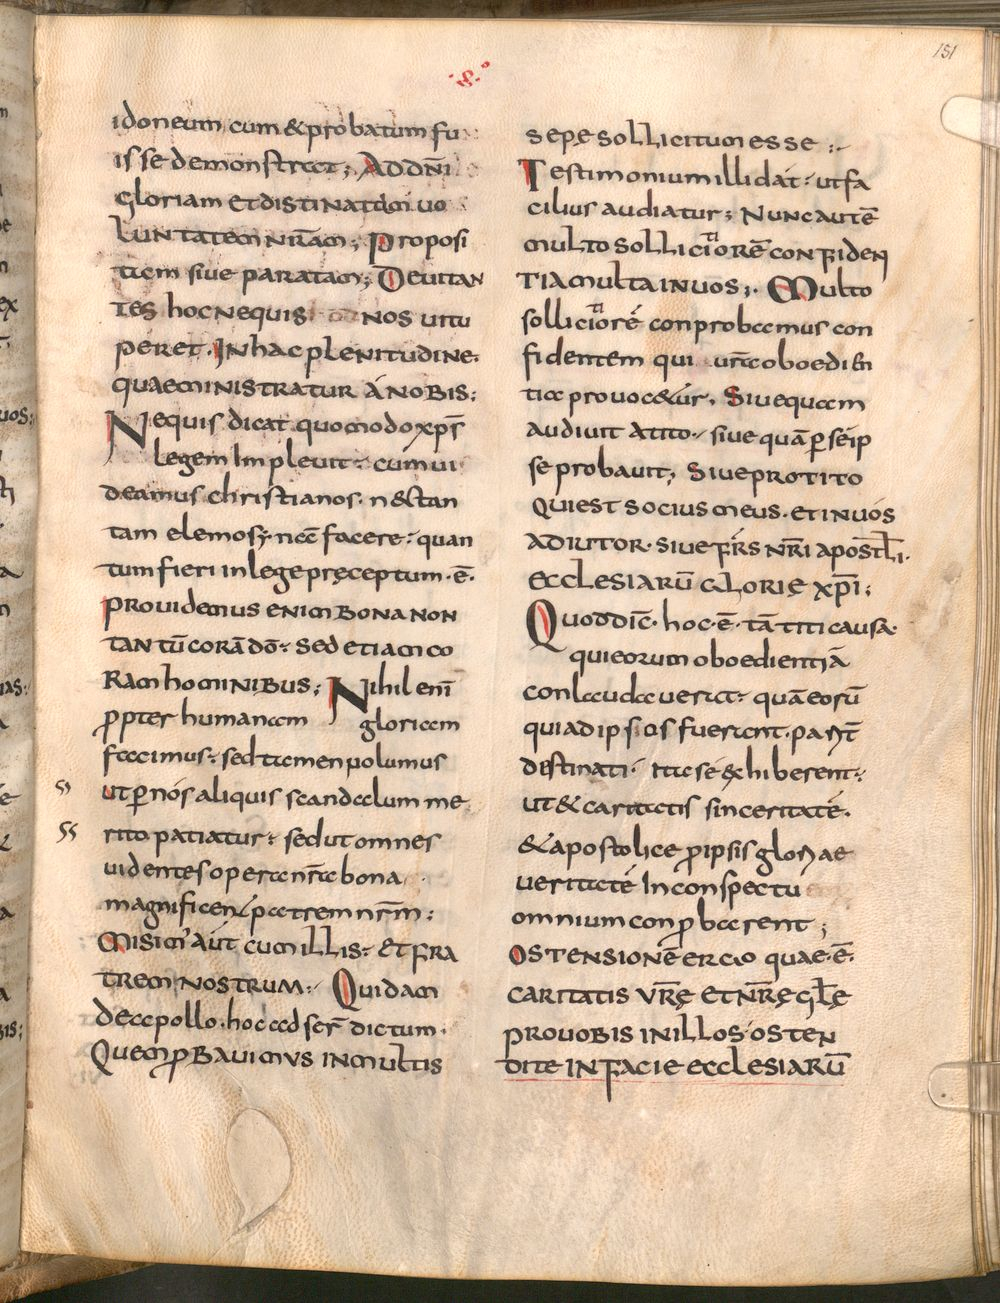 151
idoneum cum & probatum fu
isse demonstrat; Ad dn̄i
gloriam et distinatam uo
luntatem nr̄am; Proposi
tam siue paratam; Deuitan
tes hoc ne quis nos uitu
peret. In hac plenitudine.
quae ministratur a nobis;
Ne quis dicat quomodo xp̄s
legem impleuit. cum ui
deamus christianos. n& tan
tam elemosy nā facere. quan
tum fieri in lege pręceptum. ē.
prouidemus enim bona non
tantū corā dō. sed etiam co
ram hominibus; Nihil enī
propter humanam gloriam
fecimus. sed tamen uolumus
ut ꝑ nós aliquis scandalum me
rito patiatur. sed ut omnes
uidentes opera nr̄a bona
magnificen& patrem nr̄m;
Misim' aūt cum illis. et fra
trem nostrum. Quidam
de apollo. hoc ad ser̄ dictum.
Quem probauimus in multis
sepę sollicitum esse;
Testimonium illi dát. ut fa
cilius audiatur; Nunc autē
multo sollicitiorē confiden
tia multa in uos;. Multo
sollicitioré conprobamus con
fidentem qui urā oboedien
tia prouoc&ur. Siue quam
audiuit a tito. siue quā ꝑ seip
se probauit; Siue pro tito
qui est socius meus. et in uós
adiutor. siue fr̄s nr̄i apostl̄i.
ecclesiarū glorię xp̄i;
Quod dic̄. hoc. ē. tā titi causa.
qui eorum oboedientiā
conlaudauerat. quā eorū
qui ad ipsos fuerant. parit̄
destinati. ita sé exhiberent.
ut & caritatis sinceritaté.
& apostolice pro ipsis gloriae
ueritaté In conspectu
omnium conprobarent;
ostensionē ergo quae. ē.
caritatis vr̄ę et nr̄ę gl̄ę
pro uobis in illos. osten
dite in facie ecclesiarū